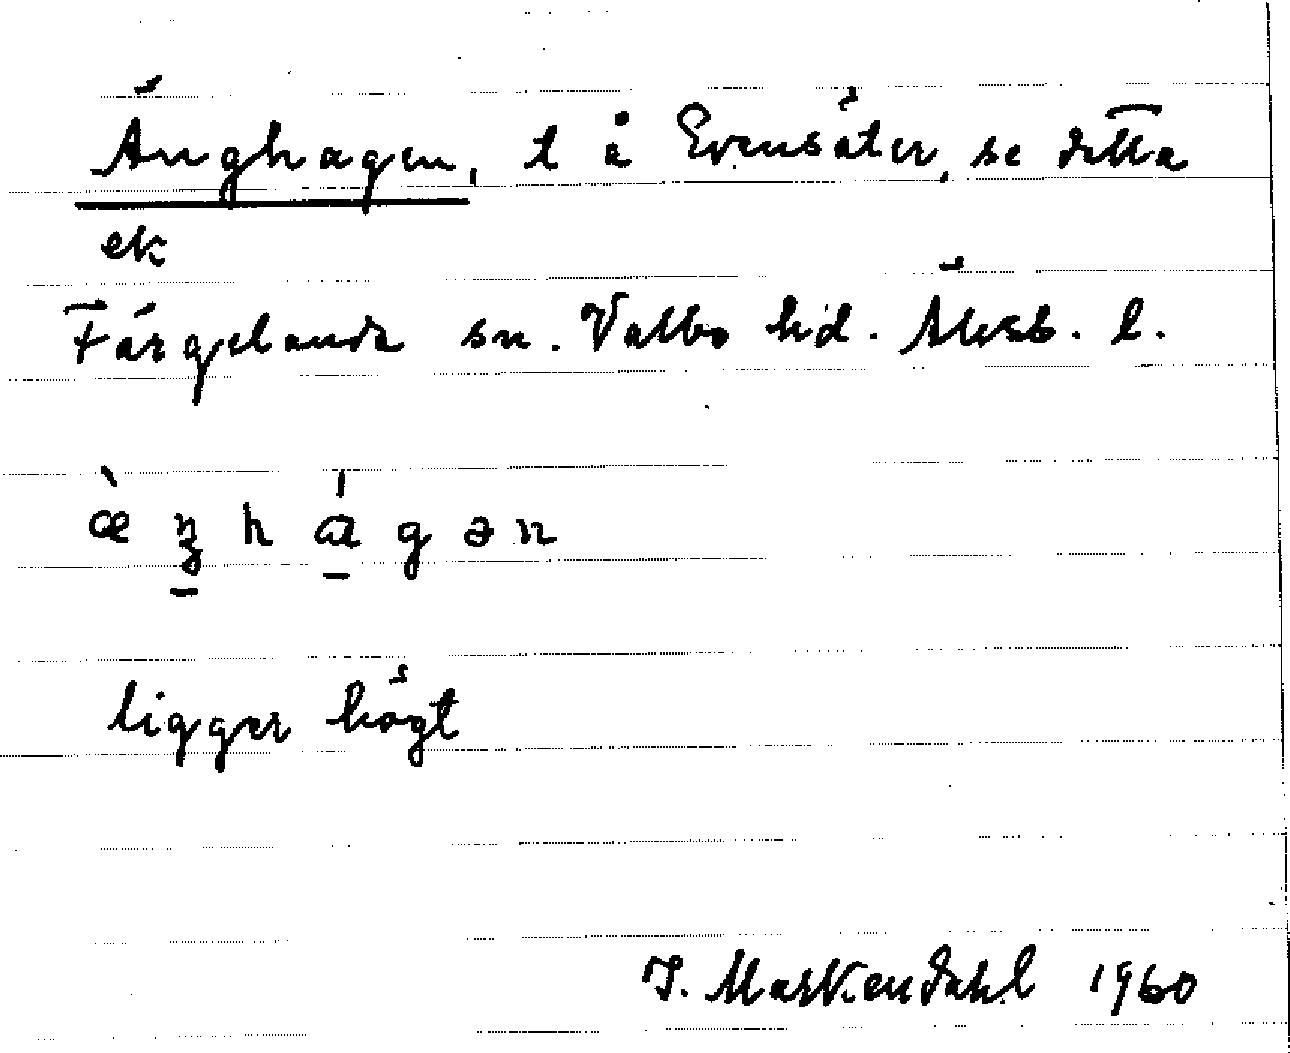 Änghagen, t å Evensäter, se detta
ek
Färgelanda sn. Valbo hd. Älvsb. l.
æ̀ ŋ h ɑ́ g ə n
ligger högt
J. Markendahl 1960